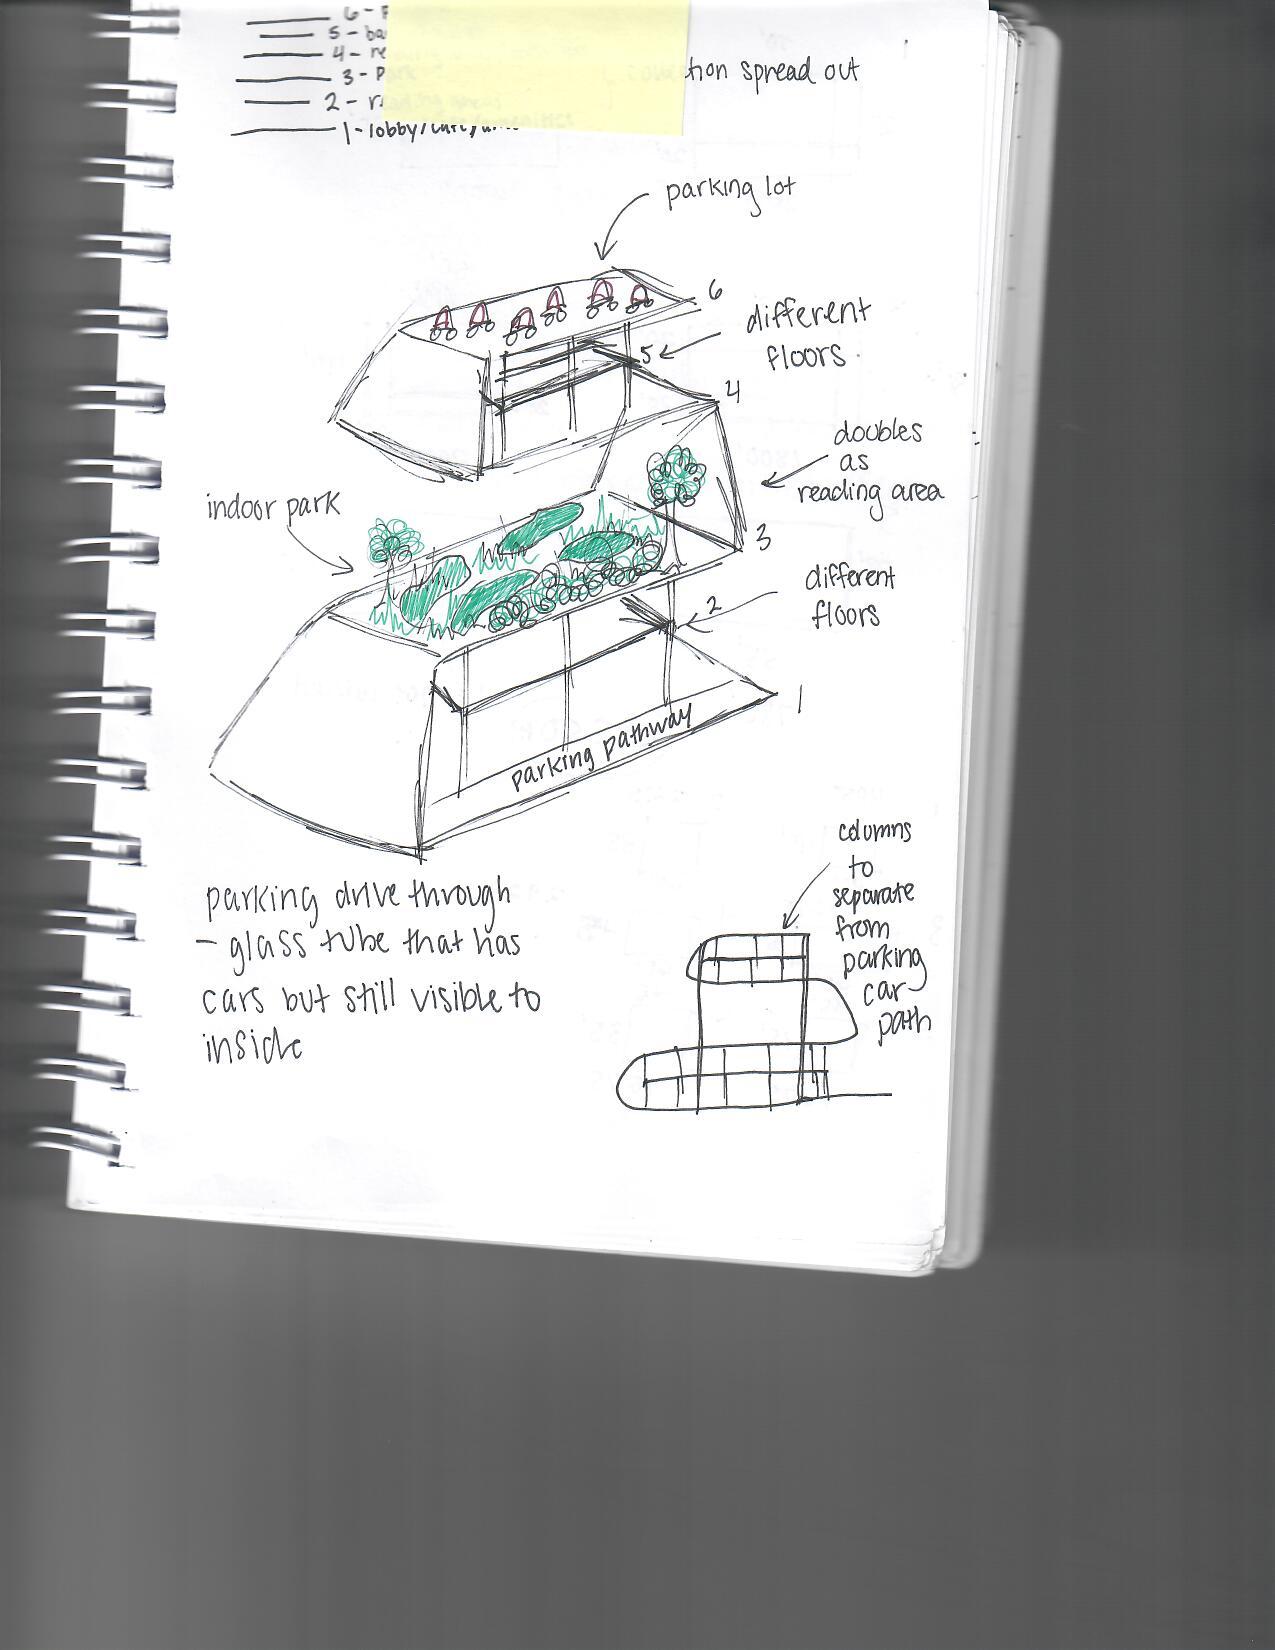 6 -
5 -
4 -
3 -
2 -
1 - lobby/
spread out
parking lot
6
different
floors
5
4
doubles
as
reading area
indoor park
3
different
floors
2
1
parking pathway
columns
to
separate
from
parking
car
path
parking drive through
- glass tube that has
cars but still visible to
inside